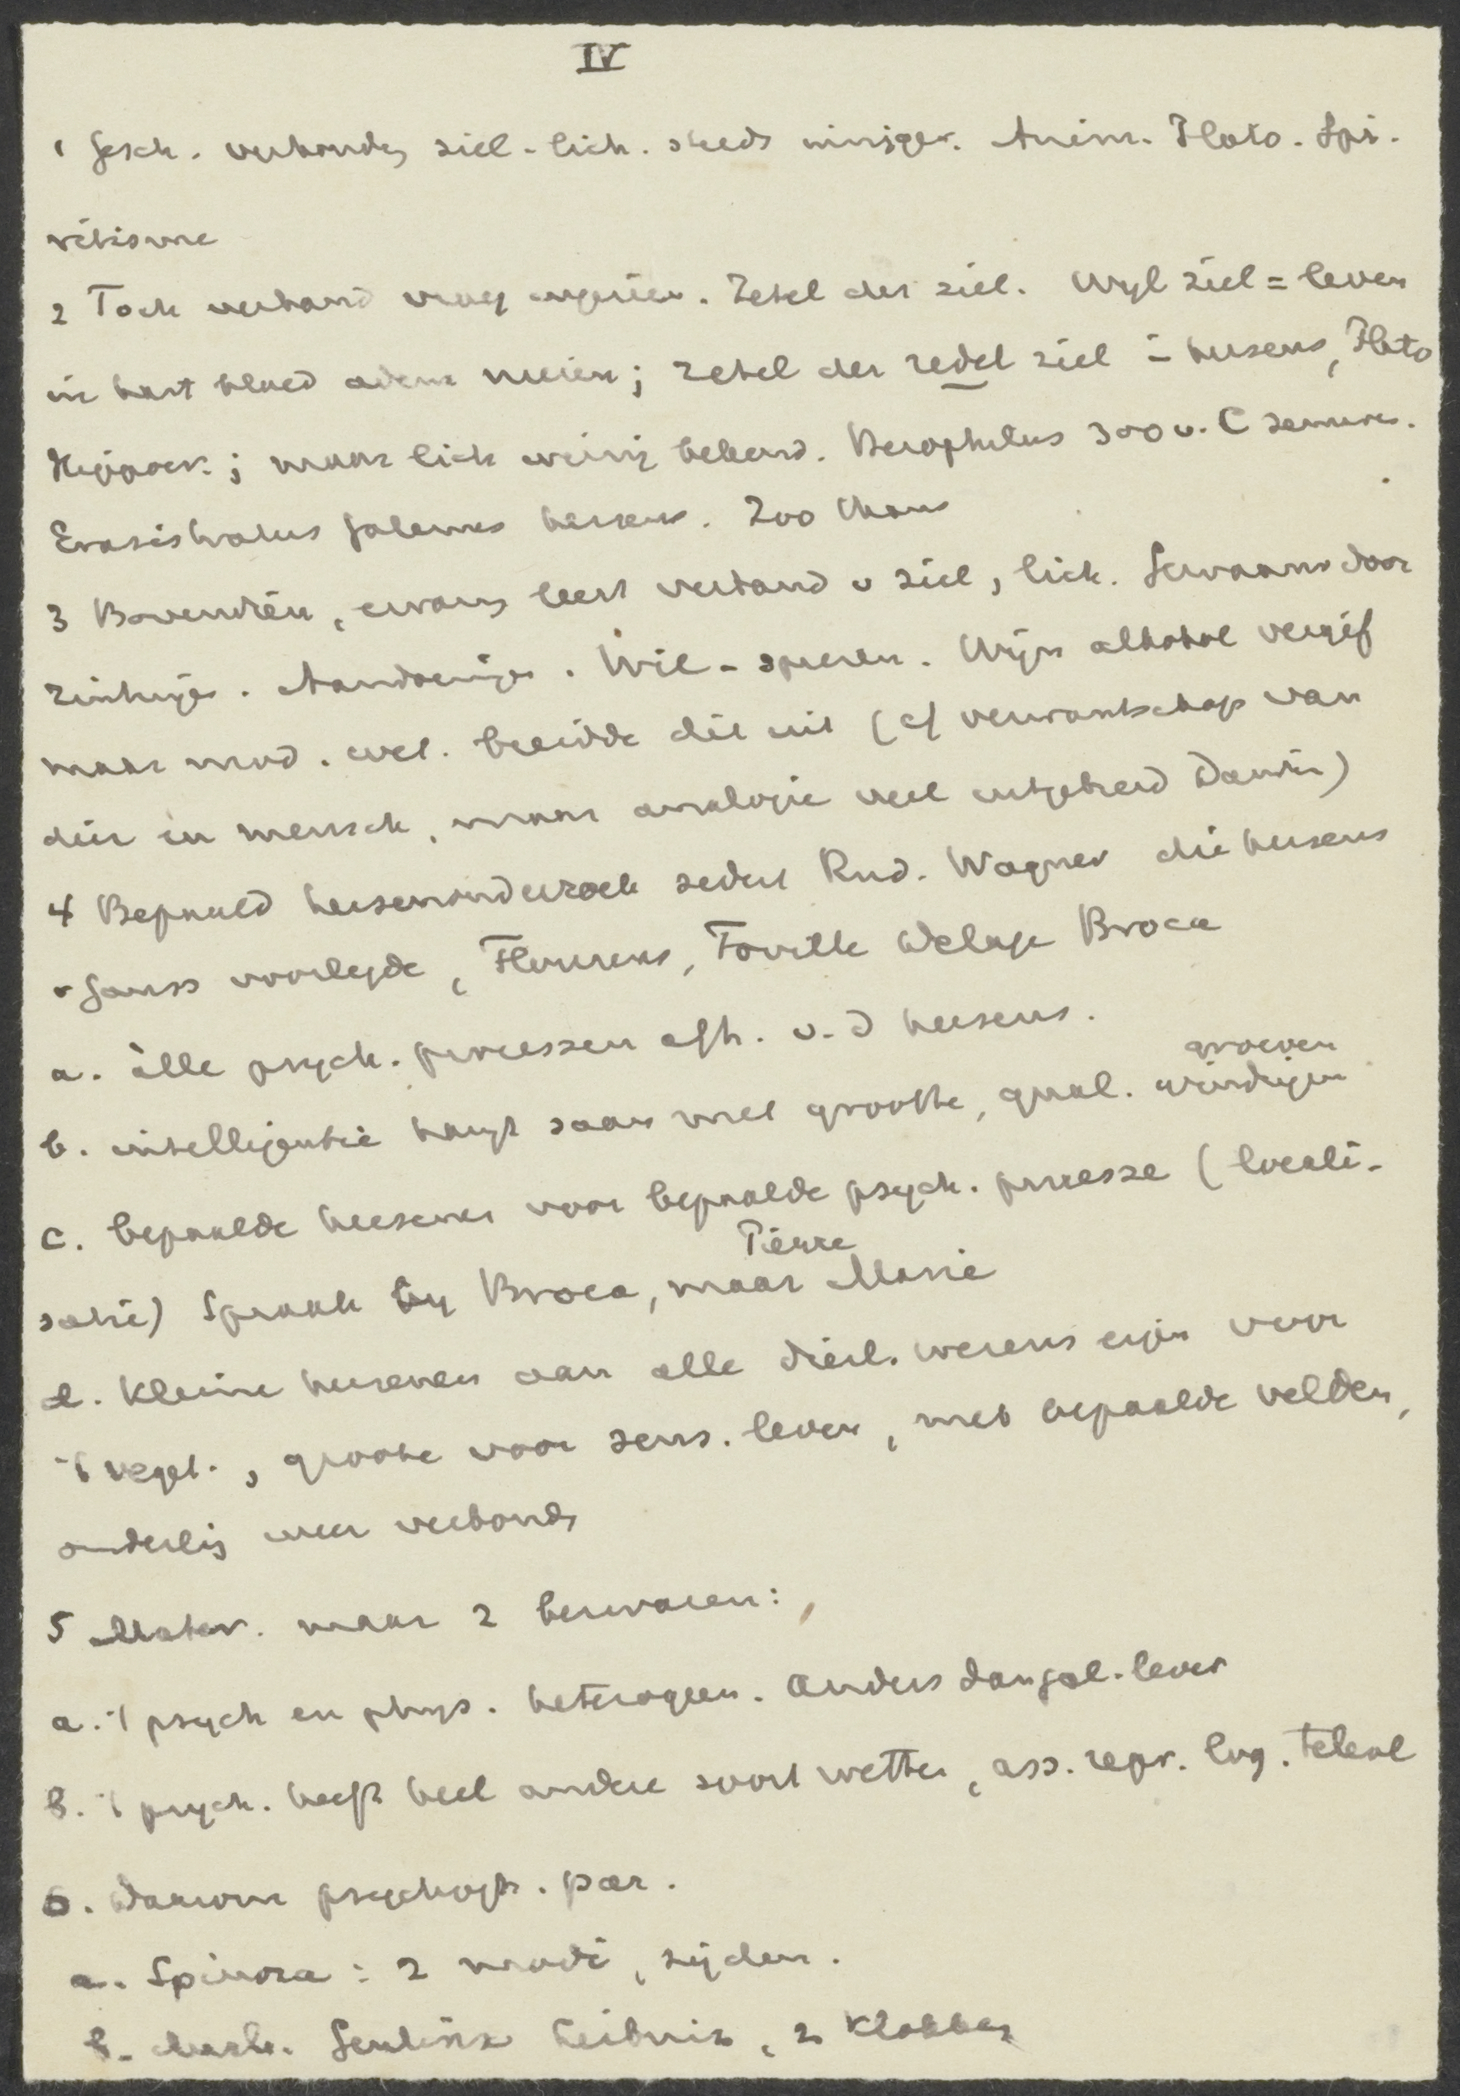 IV
1 Gesch. verhoudg ziel - lich. steeds inniger. Anim. Plato. Spi-
ritisme
2 Toch verband vroeg ingezien. Zetel der ziel. Wyl ziel = leven
in hart bloed adem nieren; zetel der redel ziel in hersens, Plato
Hippocr.; maar lich weinig bekend. Herophilus 300 v. C zenuwen.
Erasistratus Galenus hersens. Zoo
3 Bovendien, ervaring leert verband v ziel, lich. Gewaarw door
zintuigen. Aandoeningen. Wil - spieren. Wijn alkohol vergif
maar mod. wet. breidde dit uit (cf verwantschap van
dier en mensch, maar analogie veel uitgebreid Darwin)
4 Bepaald hersenonderzoek sedert Rud. Wagner die hersens
v Gauss voorlegde, Flourens, Foville Delaye Broca
a. àlle psych. processen afh. v. d hersens.
b. intelligentie hangt saam met grootte, qual. windingen groeven
c. bepaalde hersenen voor bepaalde psych. processe (locali-
satie) Spraak by Broca, maar Pierre Marie
d. Kleine hersenen aan alle dierl. wezens eigen voor
't veget., groote voor sens. leven, met bepaalde velden,
onderling weer verbondn
5 Mater. maar 2 bezwaren:
a. 't psych en phys. heterogeen. Anders dan gal - lever
b. 't psych. heeft heel andere soort wetten, ass. repr. log. teleol
6. Daarom psychoph. par.
a. Spinoza: 2 modi, zijden.
b. Maleb. Geulinx Leibniz, 2 klokken